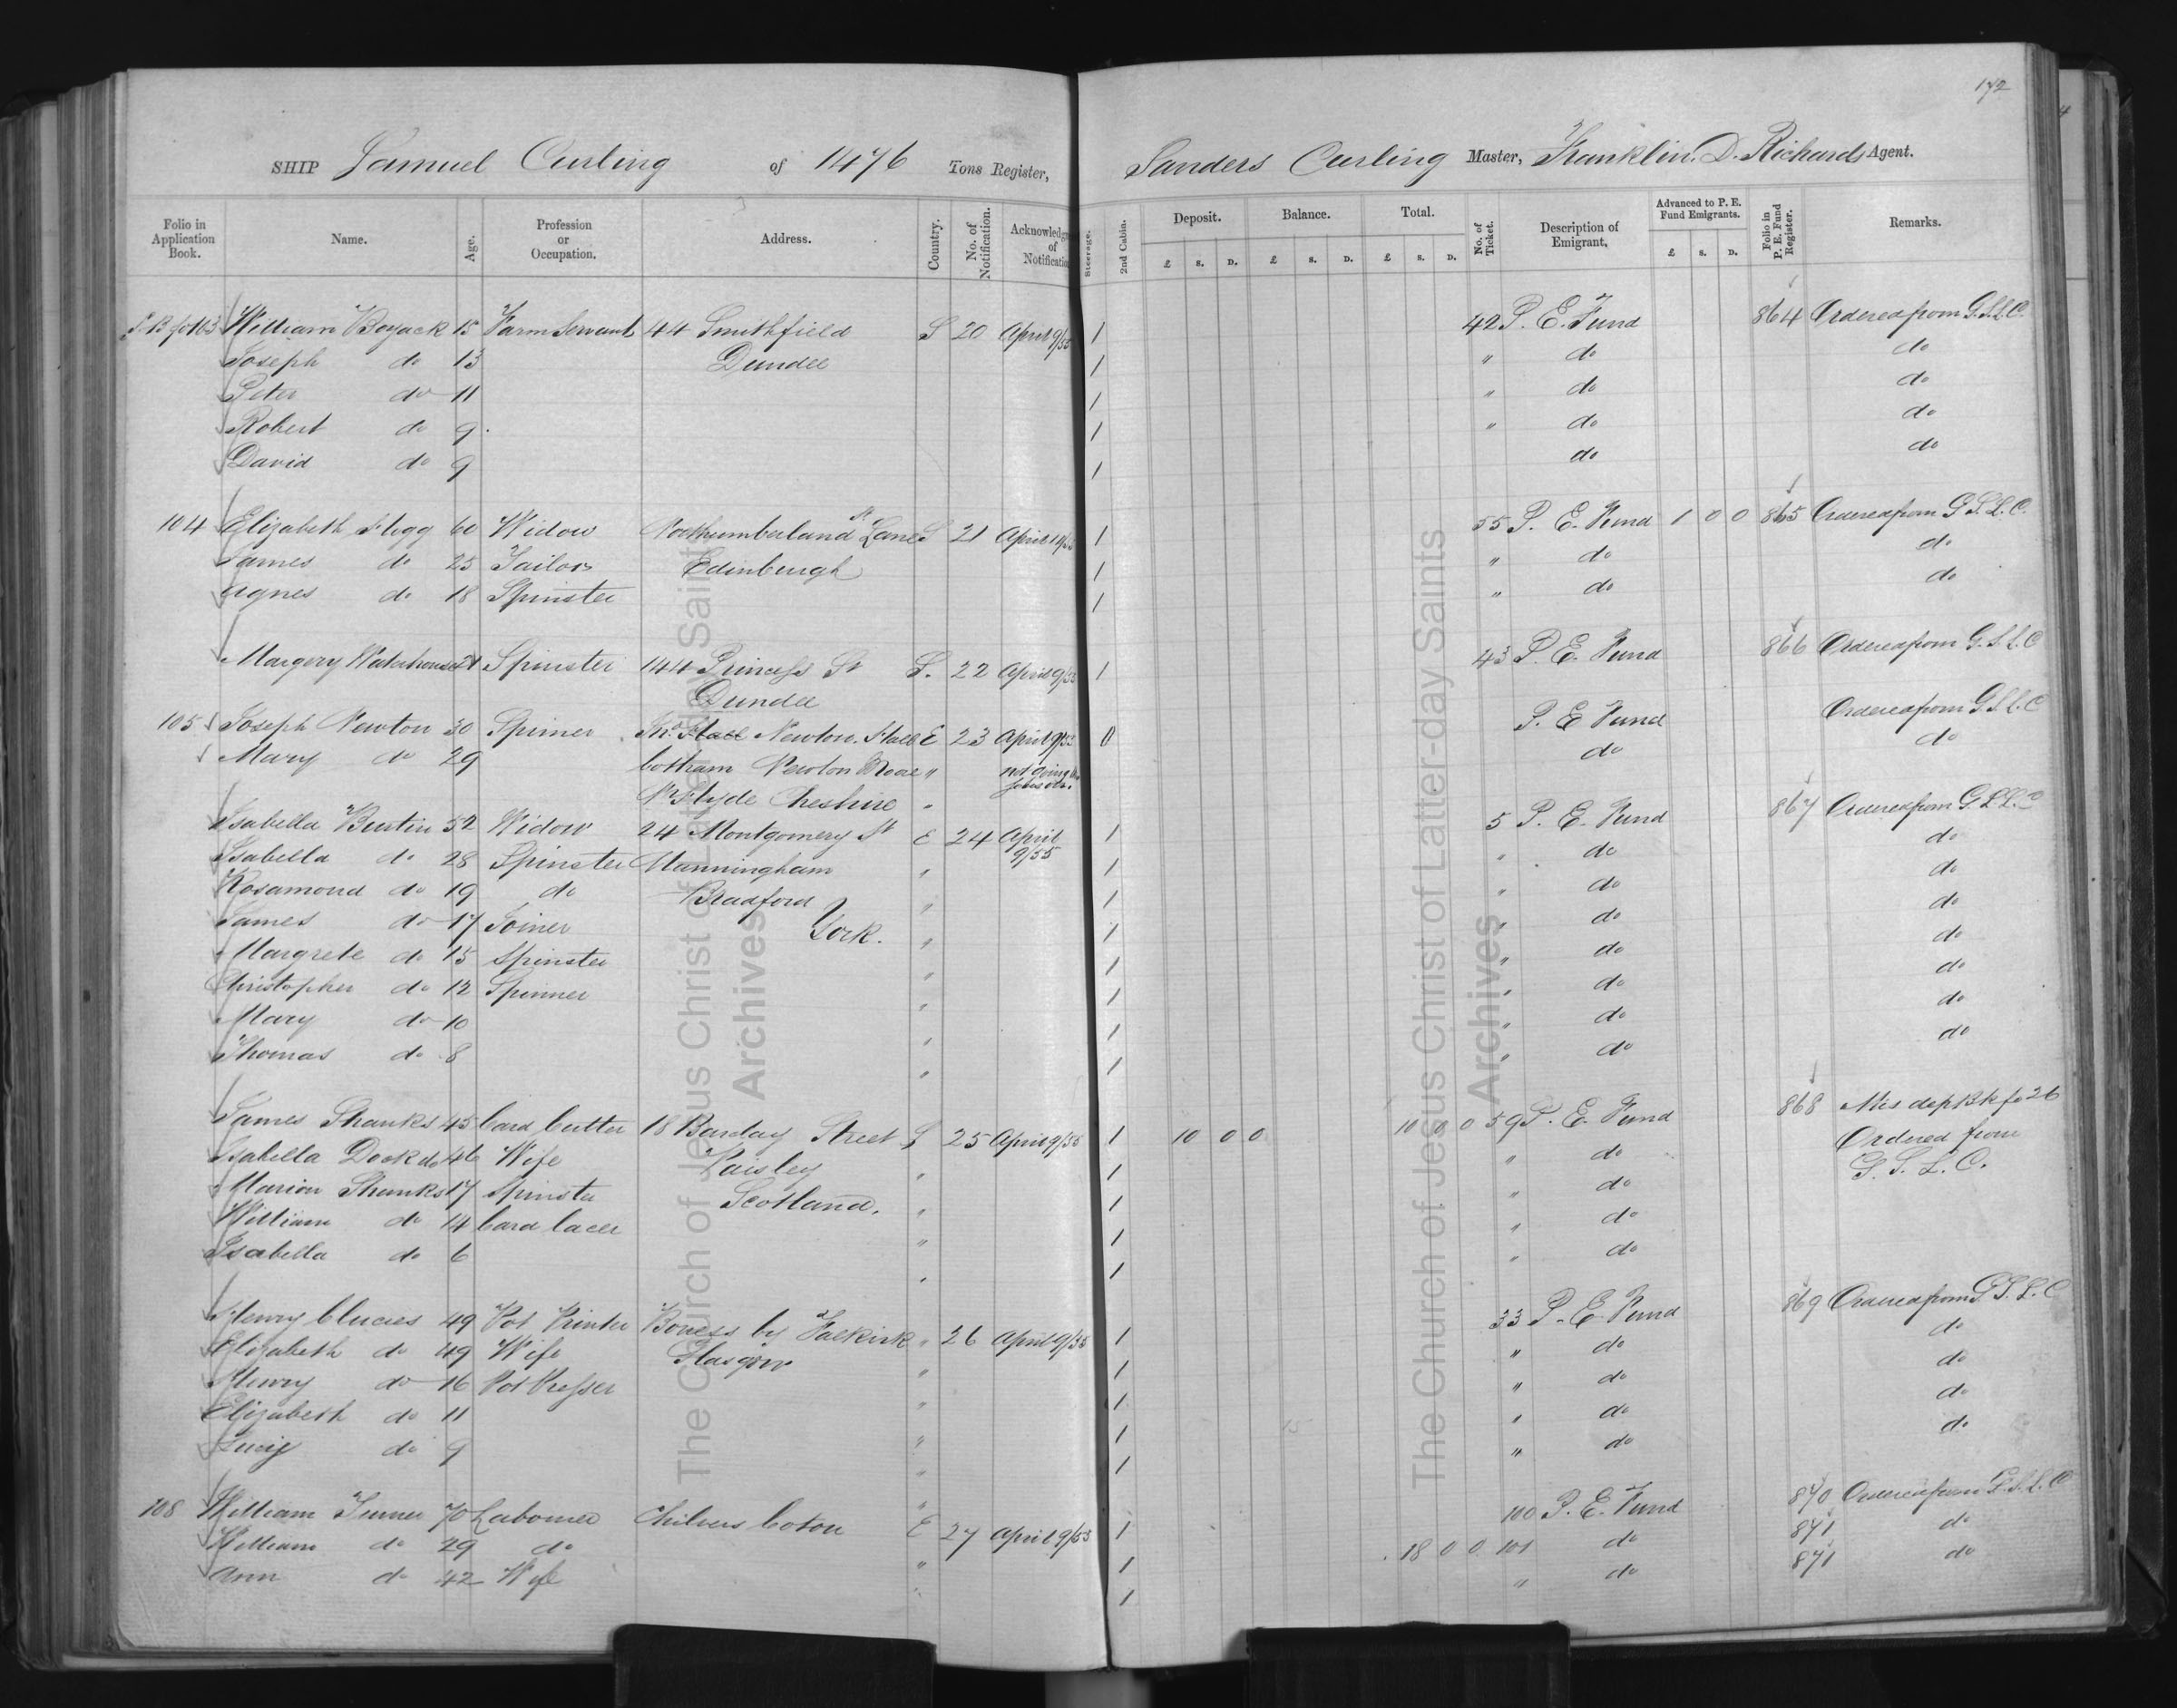 172
SHIP Samuel Curling of 1476 Tons Register, Sanders Curling Master, Franklin D. Richards Agent.
Folio in Application Book. Name. Age. Profession or Occupation. Address. Country. No. of Notification. Acknowledg of Notification Steerage. 2nd Cabin. Deposit. £ s. D. Balance. £ s. D. Total. £ s. D. No. of Ticket. Description of Emigrant. Advanced to P. E. Fund Emigrants. £ s. D. Folio in P. E. Fund Register. Remarks.
William Boyack 15 Farm Servant 44 Smithfield S 20 April 9/55 1 42 P. E. Fund 864 Ordered from G.S.L.C.
Joseph do 13 Dundee 1 " do do
Peter do 11 1 " do do
Robert do 9 1 " do do
David do 9 1 do do
104 Elizabeth Flegg 60 Widow Northumberland St Lane S 21 April 1 55 P. E. Fund 1 0 0 865 Ordered from G.S.L.C.
James do 25 Tailor Edinburgh 1 " do do
Agnes do 18 Spinster 1 " do do
Margery Waterhouse 21 Spinster 144 Princess St S. 22 April 9/55 1 43 P. E. Fund 866 Ordered from G.S.L.C
Dundee
105 Joseph Newton 30 Spinner Newton. E 23 April 9/55 P. E Fund Ordered from G.S.L.C
Mary do 29 Newton Moor " not going do do
Nr Hyde Cheshire "
Isabella Bustin 52 Widow 24 Montgomery St E 24 April 9/55 1 5 P. E. Fund 867 Ordered from G.S.L.C
Isabella do 28 Spinster Manningham " 1 " do do
Rosamond do 19 do Bradford " 1 " do do
James do 17 Joiner York. " 1 " do do
Margrete do 15 Spinster " 1 " do do
Christopher do 12 Spinner " 1 " do do
Mary do 10 " 1 " do do
Thomas do 8 " 1 " do do
James Shanks 45 Card Cutter 18 Barclay Street S 25 April 9/55 1 10 0 0 10 0 0 59 P. E. Fund 868 Mis dep Bk fo 26
Isabella Dock do 46 Wife Paisley " 1 " do Ordered from
Marion Shanks 17 Spinster Scotland. " 1 " do G. S. L. C.
William do 14 Card lacer " 1 " do
Isabella do 6 " 1 " do
Henry Clucas 49 Pot Printer Boness by Falkirk " 26 April 9/55 1 33 P. E. Fund 869 Ordered from G.S.L.C
Elizabeth do 49 Wife Glasgow " 1 " do do
Henry do 16 Pot Presser " 1 " do do
Elizabeth do 11 " 1 " do do
Lucy do 9 " 1 " do do
108 William Turner 70 Labourer Chilvers Coton E 27 April 9/55 1 100 P. E. Fund 870 Ordered from G.S.L.C
William do 29 do " 1 18 0 0 101 do 871 do
Ann do 42 Wife " 1 " do 871 do
The Church of Jesus Christ of Latter-day Saints
Archives
The Church of Jesus Christ of Latter-day Saints
Archives